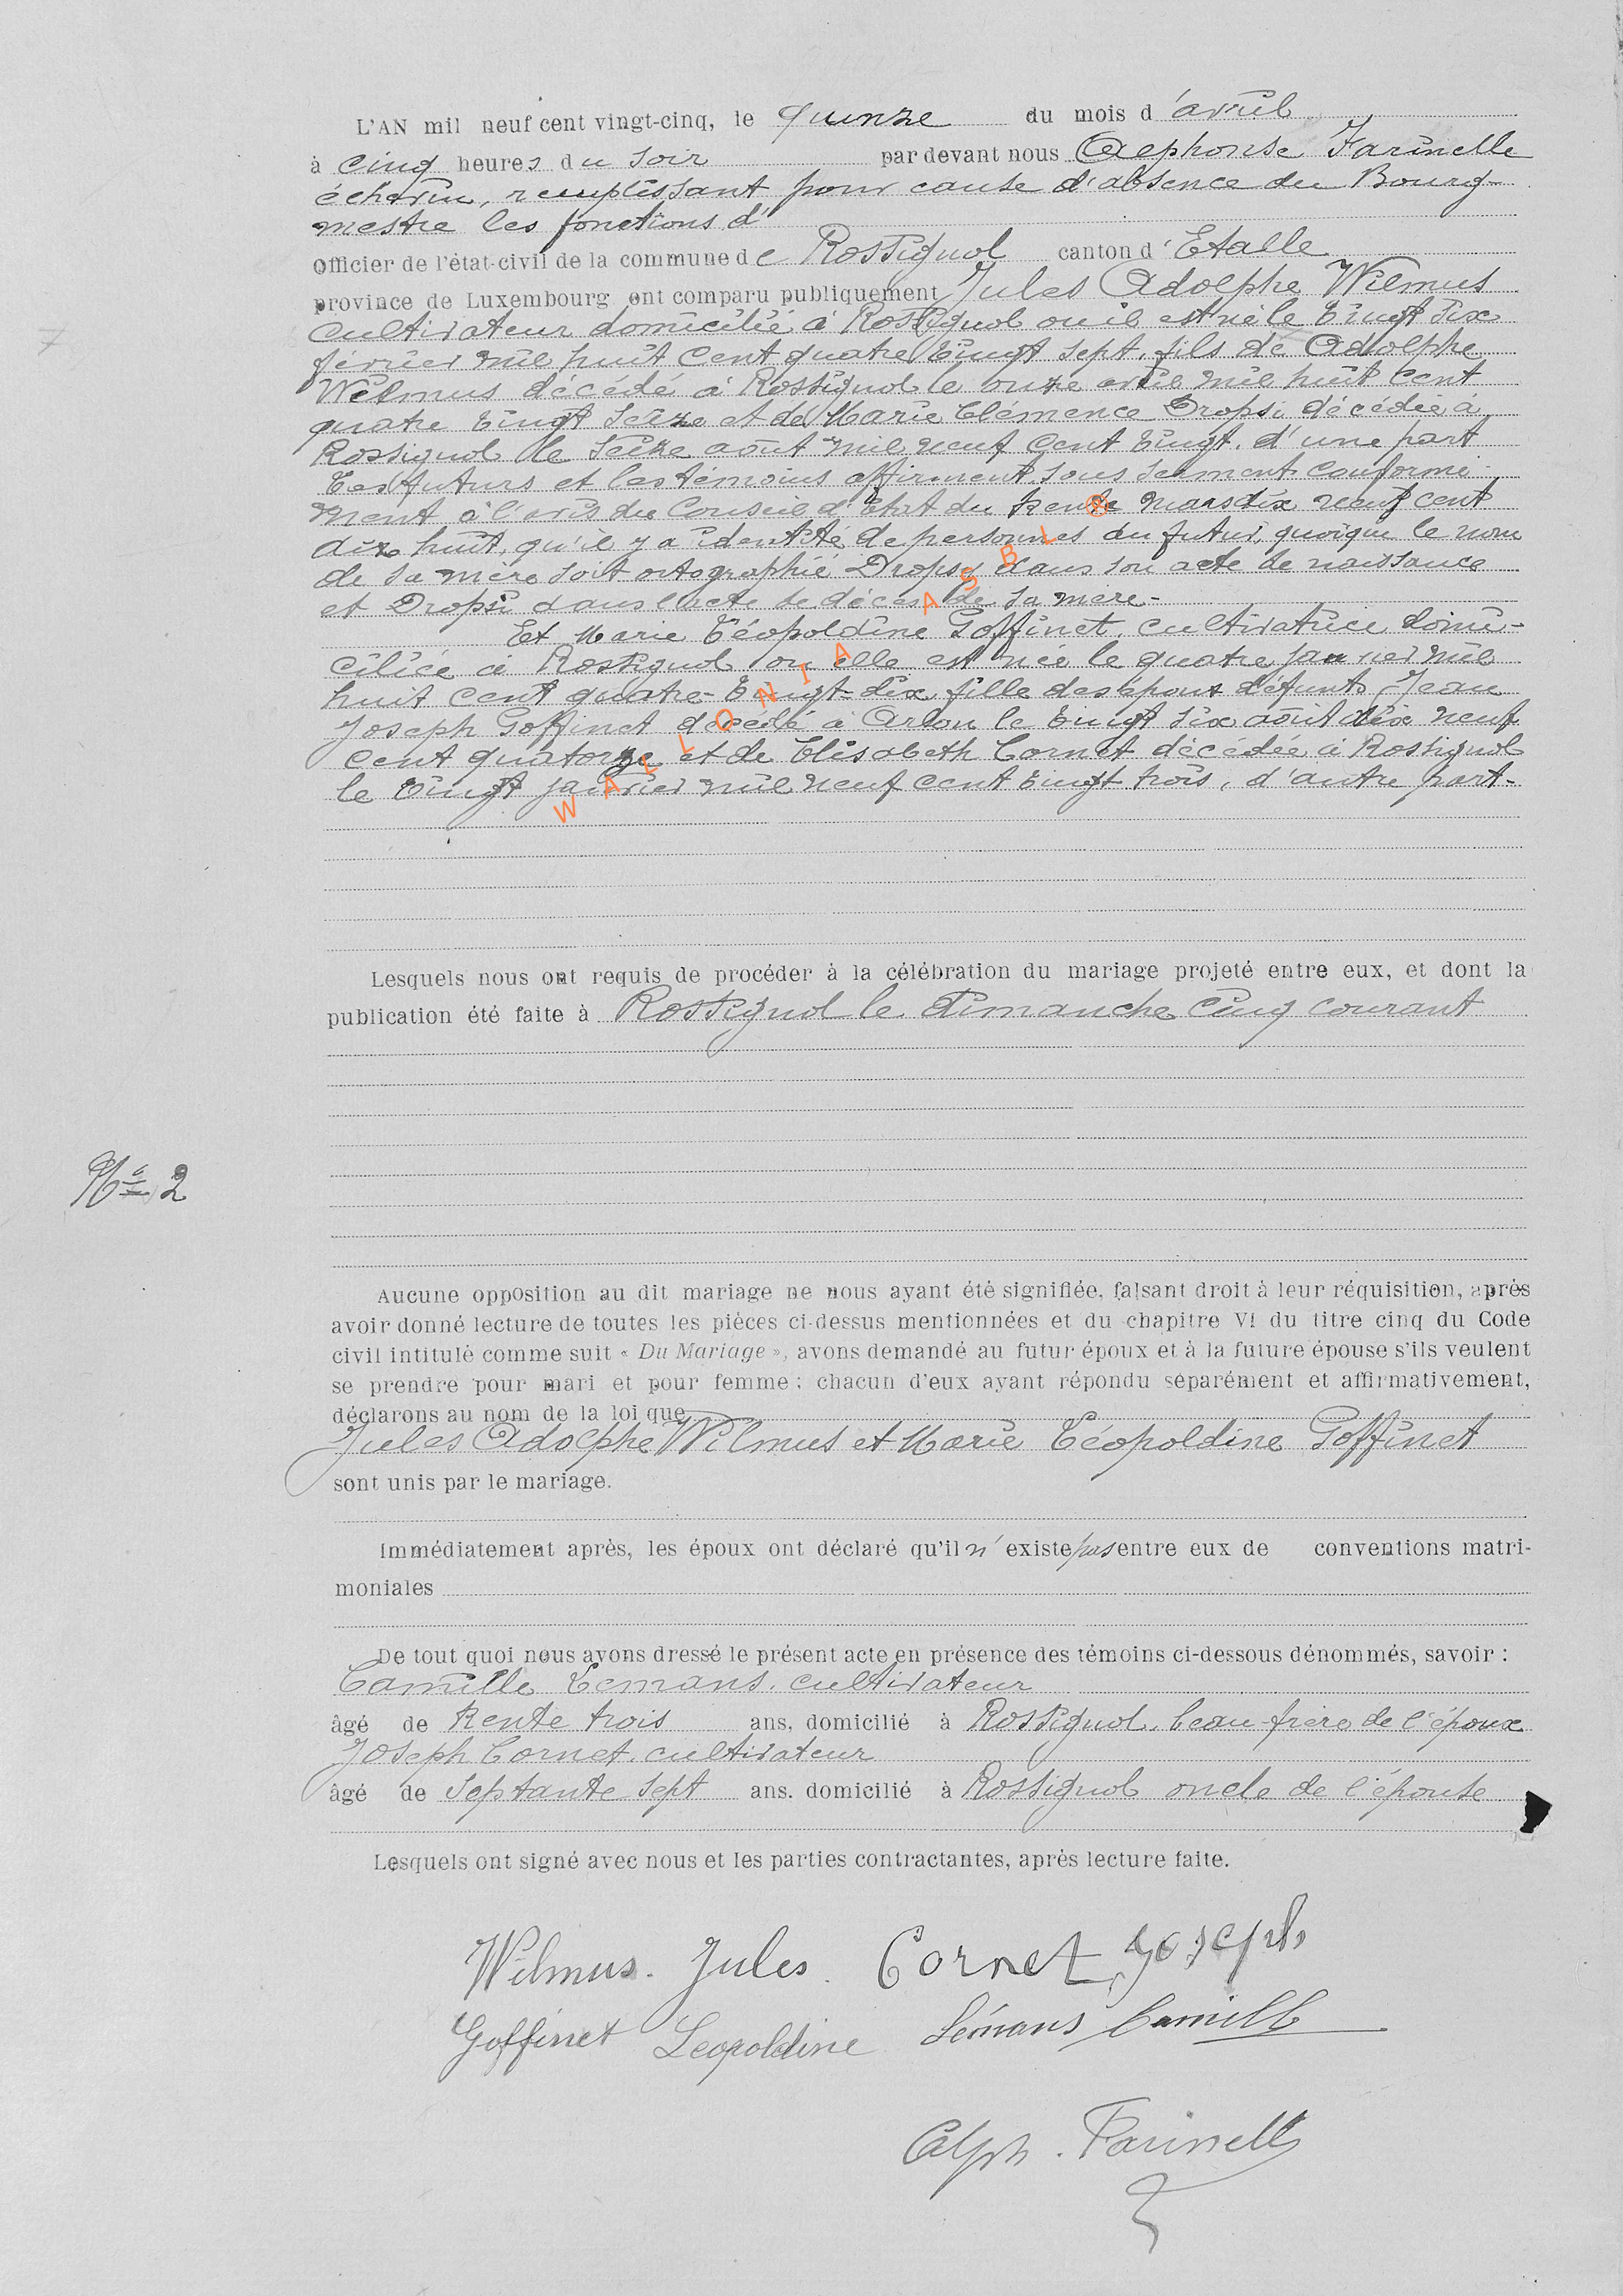 L'AN mil neuf cent vingt-cinq, le quinze du mois d'avril
à cinq heures du soir par devant nous Alphonse Farinelle
échevin, remplissant pour cause d'absence du Bourg-
mestre les fonctions d'
officier de l'état-civil de la commune de Rossignol canton d'Etalle
province de Luxembourg ont comparu publiquement Jules Adolphe Wilmus
cultivateur domicilié à Rossignol ou il est né le vingt six
février mil huit cent quatre vingt sept, fils de Adolphe
Wilmus décédé à Rossignol le onze avril mil huit cent
quatre vingt seize et de Marie Clémence Dropsi décédée à
Rossignol le seize août mil neuf cent vingt, d'une part
Les futurs et les témoins affirment sous serment conformé-
ment à l'avis du Conseil d'Etat du trente mars dix neuf cent
dix huit, qu'il y a identité de personnes du futur, quoique le nom
de sa mère soit ortographié Dropsy dans son acte de naissance
et Dropsi dans l'acte de décès de sa mère-
Et Marie Léopoldine Goffinet, cultivatrice domi-
ciliée à Rossignol ou elle est née le quatre janvier mil
huit cent quatre-vingt-dix fille des époux défunts Jean
Joseph Goffinet décédé à Arlon le vingt six août dix neuf
cent quatorze et de Elisabeth Cornet décédée à Rossignol
le vingt janvier mil neuf cent vingt trois, d'autre part-
WALLONIA ASBL
Lesquels nous ont requis de procéder à la célébration du mariage projeté entre eux, et dont la
publication été faite à Rossignol le dimanche cinq courant
No 2
Aucune opposition au dit mariage ne nous ayant été signifiée, faisant droit à leur réquisition, après
avoir donné lecture de toutes les pièces ci-dessus mentionnées et du chapitre VI du titre cinq du Code
civil intitulé comme suit « Du Mariage », avons demandé au futur époux et à la future épouse s'ils veulent
se prendre pour mari et pour femme ; chacun d'eux ayant répondu séparément et affirmativement,
déclarons au nom de la loi que
Jules Adolphe Wilmus et Marie Léopoldine Goffinet
sont unis par le mariage.
Immédiatement après, les époux ont déclaré qu'il n'existe pas entre eux de conventions matri-
moniales
De tout quoi nous avons dressé le présent acte en présence des témoins ci-dessous dénommés, savoir :
Camille Lemans, cultivateur
âgé de trente trois ans, domicilié à Rossignol, beau frère de l'époux
Joseph Cornet, cultivateur
âgé de septante sept ans. domicilié à Rossignol oncle de l'épouse
Lesquels ont signé avec nous et les parties contractantes, après lecture faite.
Wilmus. Jules. Cornet Joseph
Goffinet Leopoldine Lémans Camille
Alph. Farinelle